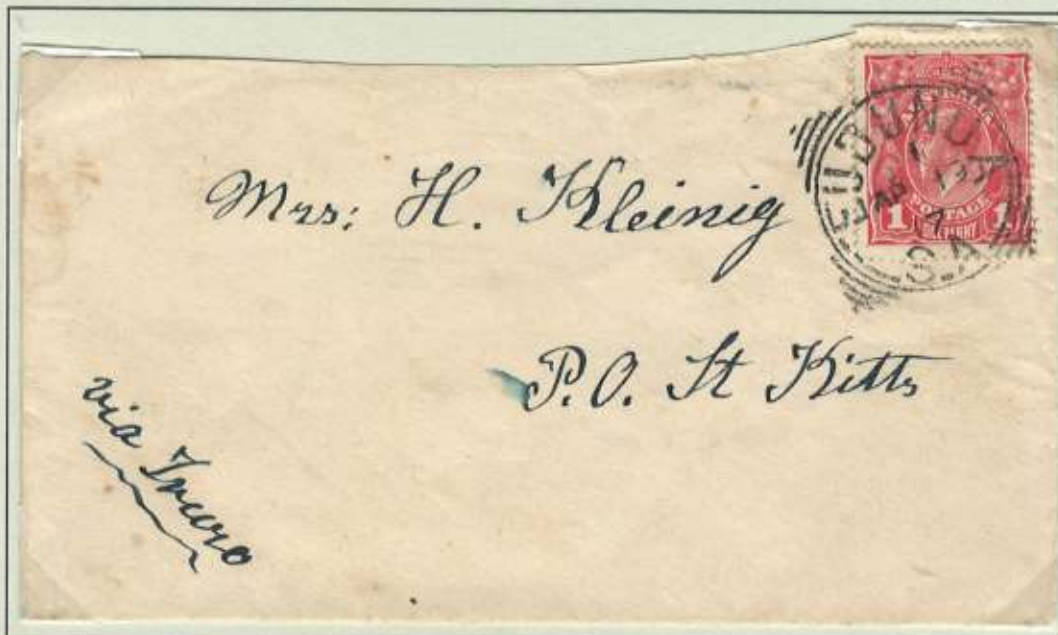 EUDUNDA
S.A
POSTAGE
1 ONE PENNY 1
Mrs: H. Kleinig
P.O. St Kitts
via Truro